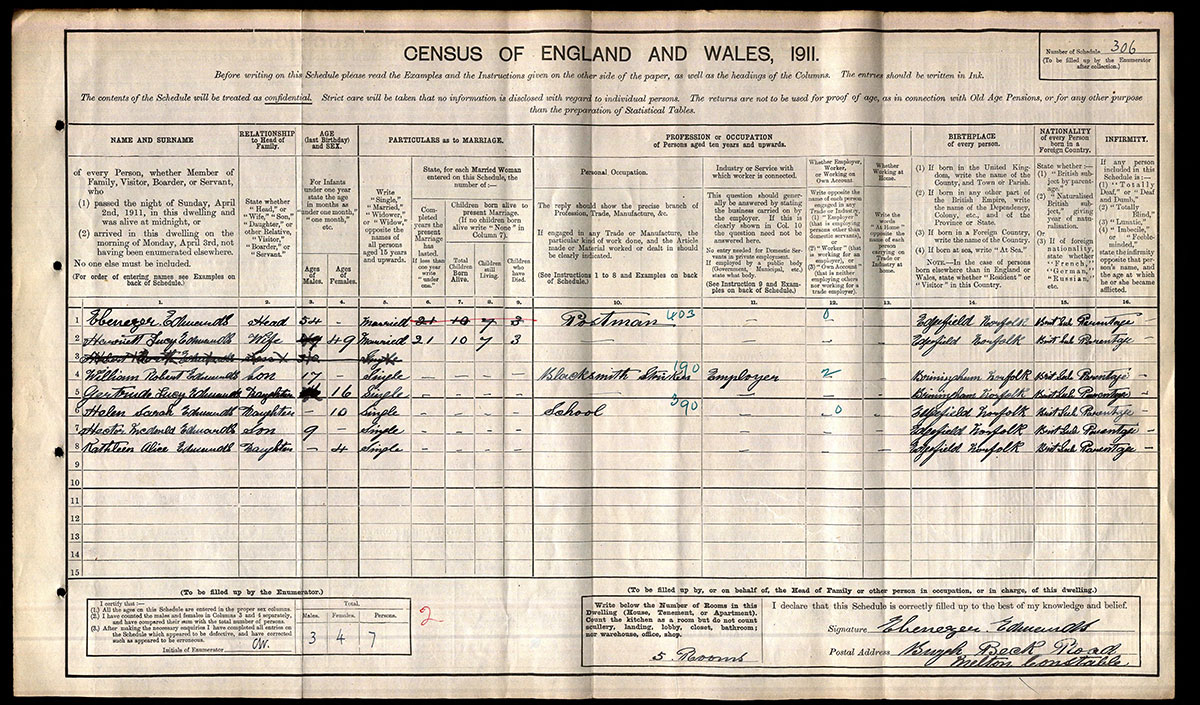 CENSUS OF ENGLAND AND WALES, 1911.
Number of Schedule 306
(To be filled up by the Enumerator
after collection.)
Before writing on this Schedule please read the Examples and the Instructions given on the other side of the paper, as well as the headings of the Columns. The entries should be written in Ink.
The contents of the Schedule will be treated as confidential. Strict care will be taken that no information is disclosed with regard to individual persons. The returns are not to be used for proof of age, as in connection with Old Age Pensions, or for any other purpose
than the preparation of Statistical Tables.
NAME AND SURNAME
of every Person, whether Member of
Family, Visitor, Boarder, or Servant,
who
(1) passed the night of Sunday, April
2nd, 1911, in this dwelling and
was alive at midnight, or
(2) arrived in this dwelling on the
morning of Monday, April 3rd, not
having been enumerated elsewhere.
No one else must be included.
(For order of entering names see Examples on
back of Schedule.)
1.
RELATIONSHIP
to Head of
Family.
State whether
"Head," or
"Wife," "Son,"
"Daughter," or
other Relative,
"Visitor,"
"Boarder," or
"Servant."
2.
AGE
(last Birthday)
and SEX.
For Infants
under one year
state the age
in months as
"under one
month," "one
month," etc.
Ages
of
Males.
3.
Ages
of
Females.
4.
PARTICULARS as to MARRIAGE.
Write
"Single,"
"Married,"
"Widower,"
or "Widow,"
opposite the
names of
all persons
aged 15 years
and upwards.
5.
State, for each Married Woman
entered on this Schedule, the
number of:—
Completed
years the
present
Marriage
has
lasted.
If less than
one year
write
"under
one."
6.
Children born alive to
present Marriage.
(If no children born
alive write "None" in
Column 7).
Total
Children
Born
Alive.
7.
Children
still
Living.
8.
Children
who
have
Died.
9.
PROFESSION or OCCUPATION
of Persons aged ten years and upwards.
Personal Occupation.
The reply should show the precise branch of
Profession, Trade, Manufacture, &c.
If engaged in any Trade or Manufacture, the
particular kind of work done, and the Article
made or Material worked or dealt in should
be clearly indicated.
(See Instructions 1 to 8 and Examples on back
of Schedule.)
10.
Industry or Service with
which worker is connected.
This question should generally
be answered by stating
the business carried on by
the employer. If this is
clearly shown in Col. 10
the question need not be
answered here.
No entry needed for Domestic Servants
in private employment.
If employed by a public body
(Government, Municipal, etc.)
state what body.
(See Instruction 9 and Examples
on back of Schedule.)
11.
Whether Employer,
Worker,
or Working on
Own Account.
Write opposite the
name of each person
engaged in any
Trade or Industry,
(1) "Employer"
(that is employing
persons other than
domestic servants),
or
(2) "Worker" (that
is working for an
employer), or
(3) "Own Account"
(that is neither
employing others
nor working for a
trade employer).
12.
Whether
Working at
Home.
Write the
words
"At Home"
opposite the
name of each
person
carrying on
Trade or
Industry at
home.
13.
BIRTHPLACE
of every person.
(1) If born in the United Kingdom,
write the name of the
County, and Town or Parish.
(2) If born in any other part of
the British Empire, write
the name of the Dependency,
Colony, etc., and of the
Province or State.
(3) If born in a Foreign Country,
write the name of the Country.
(4) If born at sea, write "At Sea."
NOTE.—In the case of persons
born elsewhere than in England or
Wales, state whether "Resident" or
"Visitor" in this Country.
14.
NATIONALITY
of every Person
born in a
Foreign Country.
State whether:—
(1) "British
subject by
parentage,"
(2) "Naturalised
British
subject,"
giving
year of
naturalisation.
Or
(3) If of foreign
nationality,
state whether
"French,"
"German,"
"Russian,"
etc.
15.
INFIRMITY.
If any person
included in this
Schedule is:—
(1) "Totally
Deaf," or "Deaf
and Dumb,"
(2) "Totally
Blind,"
(3) "Lunatic,"
(4) "Imbecile,"
or "Feeble-
minded,"
state the infirmity
opposite that person's
name, and
the age at which
he or she became
afflicted.
16.
1 Ebenezer Edmunds Head 54 - Married 21 10 7 3 Postman 403 0 Edgefield Norfolk Brit Sub Parentage -
2 Harriett Lucy Edmunds Wife 49 Married 21 10 7 3 — — — Edgefield Norfolk Brit Sub Parentage -
3 Single
4 William Robert Edmunds Son 17 - Single - - - - Blacksmith Striker 190 Employer 2 - Briningham Norfolk Brit Sub Parentage -
5 Gertrude Lucy Edmunds Daughter 16 Single - - - - — — - Briningham Norfolk Brit Sub Parentage -
6 Helen Sarah Edmunds Daughter - 10 Single - - - - School 390 — 0 - Edgefield Norfolk Brit Sub Parentage -
7 Hector McDonald Edmunds Son 9 - Single - - - - — — - Edgefield Norfolk Brit Sub Parentage -
8 Kathleen Alice Edmunds Daughter - 4 Single - - - - — — - Edgefield Norfolk Brit Sub Parentage -
9
10
11
12
13
14
15
(To be filled up by the Enumerator.)
I certify that:—
(1.) All the ages on this Schedule are entered in the proper sex columns.
(2.) I have counted the males and females in Columns 3 and 4 separately,
and have compared their sum with the total number of persons.
(3.) After making the necessary enquiries I have completed all entries on
the Schedule which appeared to be defective, and have corrected
such as appeared to be erroneous.
Initials of Enumerator
Total.
Males. Females. Persons.
3 4 7
2
(To be filled up by, or on behalf of, the Head of Family or other person in occupation, or in charge, of this dwelling.)
Write below the Number of Rooms in this
Dwelling (House, Tenement, or Apartment).
Count the kitchen as a room but do not count
scullery, landing, lobby, closet, bathroom;
nor warehouse, office, shop.
5 Rooms
I declare that this Schedule is correctly filled up to the best of my knowledge and belief.
Signature Ebenezer Edmunds
Postal Address Burgh Beck Road
Melton Constable